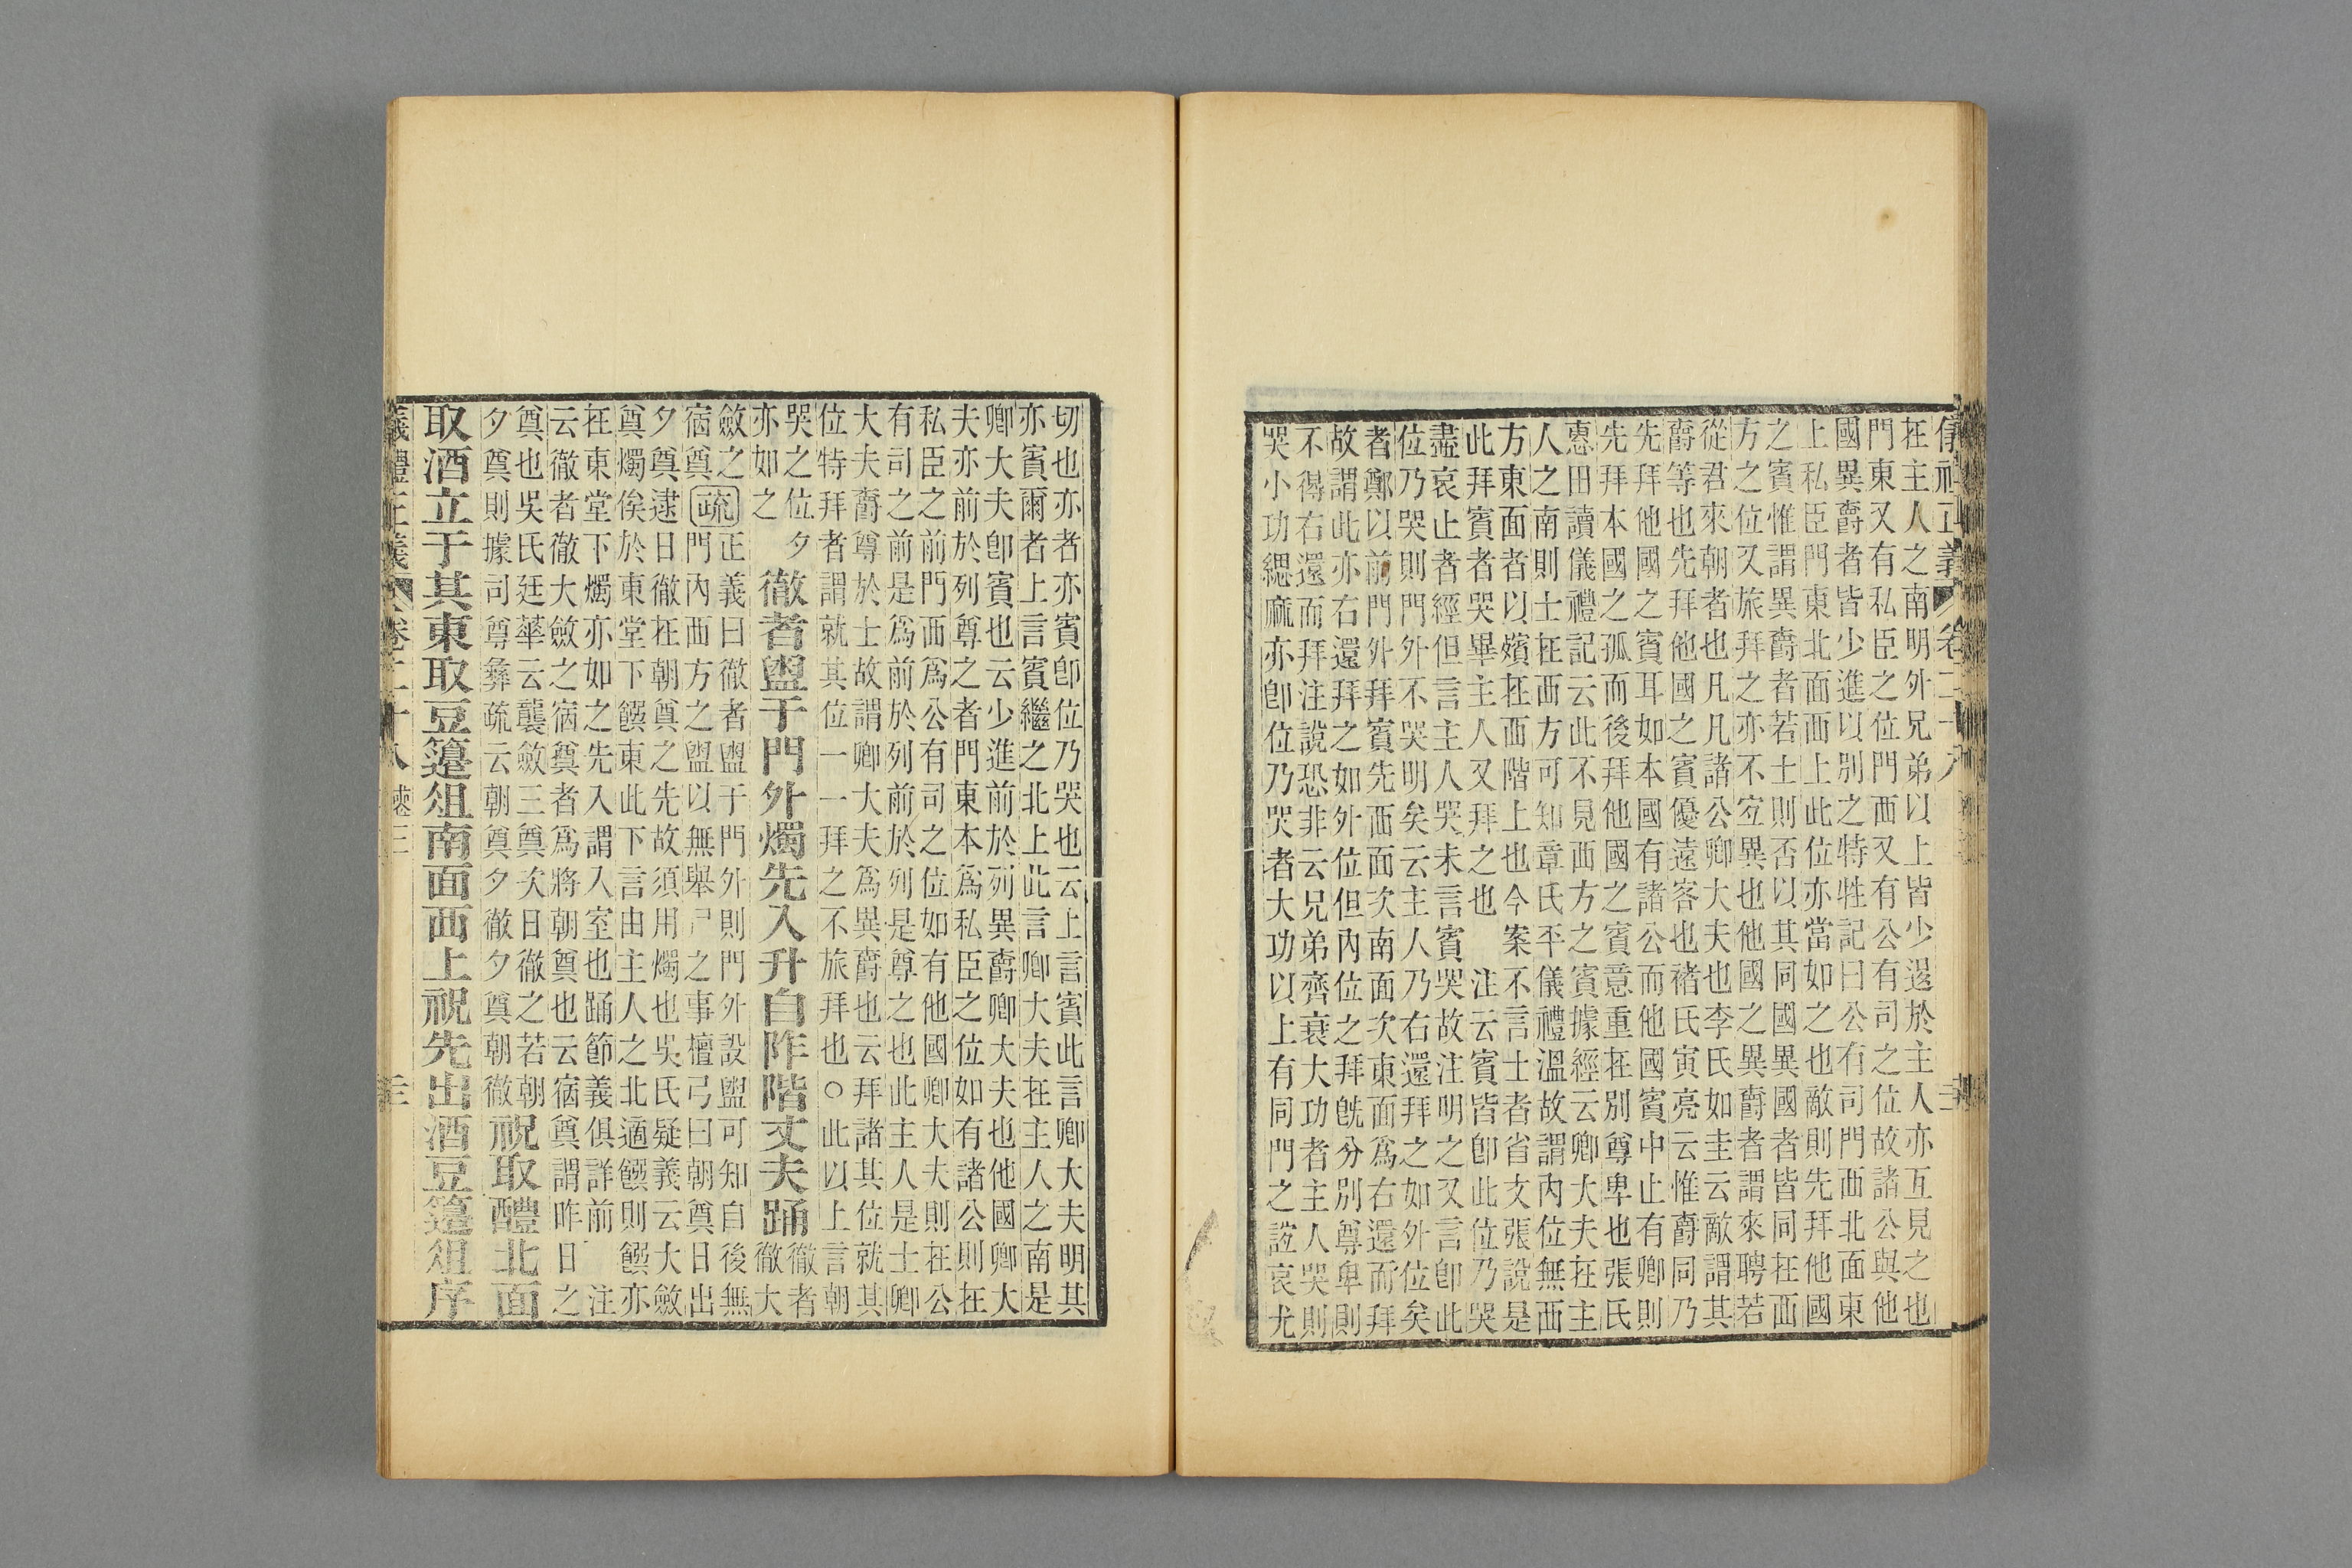 儀禮正義 卷二十八
在主人之南明外兄弟以上皆少退於主人亦互見之也
門東又有私臣之位門西又有公有司之位故諸公與他
國異爵者皆少進以別之特牲記曰公有司門西北面東
上私臣門東北面西上此位亦當如之也敵則先拜他國
之賓惟謂異爵者若士則否以其同國異國者皆同在西
方之位又旅拜之亦不宜異也他國之異爵者謂來聘若
從君來朝者也凡凡諸公卿大夫也李氏如圭云敵謂其
爵等也先拜他國之賓優遠客也褚氏寅亮云惟爵同乃
先拜他國之賓耳如本國有諸公而他國賓中止有卿則
先拜本國之孤而後拜他國之賓意重在別尊卑也張氏
惠田讀儀禮記云此不見西方之賓據經云卿大夫在主
人之南則士在西方可知章氏平儀禮溫故謂內位無西
方東面者以嬪在西階上也今案不言士者省文張說是
此拜賓者哭畢主人又拜之也　注云賓皆卽此位乃哭
盡哀止者經但言主人哭未言賓哭故注明之又言卽此
位乃哭則門外不哭明矣云主人乃右還拜之如外位矣
者鄭以前門外拜賓先西面次南面次東面爲右還而拜
故謂此亦右還拜之如外位但內位之拜旣分別尊卑則
不得右還而拜注說恐非云兄弟齊衰大功者主人哭則
哭小功緦麻亦卽位乃哭者大功以上有同門之誼哀尤
切也亦者亦賓卽位乃哭也云上言賓此言卿大夫明其
亦賓爾者上言賓繼之北上此言卿大夫在主人之南是
卿大夫卽賓也云少進前於列異爵卿大夫也他國卿大
夫亦前於列尊之者門東本爲私臣之位如有諸公則在
私臣之前門西爲公有司之位如有他國卿大夫則在公
有司之前是爲前於列前於列是尊之也此主人是士卿
大夫爵尊於士故謂卿大夫爲異爵也云拜諸其位就其
位特拜者謂就其位一一拜之不旅拜也○此以上言朝
哭之位　夕
亦如之
徹者盥于門外燭先入升自阼階丈夫踊
徹者
徹大
斂之
宿奠
疏
正義曰徹者盥于門外則門外設盥可知自後無
門內西方之盥以無舉尸之事檀弓曰朝奠日出
夕奠逮日徹在朝奠之先故須用燭也吳氏疑義云大斂
奠燭俟於東堂下饌東此下言由主人之北適饌則饌亦
在東堂下燭亦如之先入謂入室也踊節義俱詳前　注
云徹者徹大斂之宿奠者爲將朝奠也云宿奠謂昨日之
奠也吳氏廷華云襲斂三奠次日徹之若朝
夕奠則據司尊彝疏云朝奠夕徹夕奠朝徹
祝取醴北面
取酒立于其東取豆籩俎南面西上祝先出酒豆籩俎序
儀禮正義 卷二十八